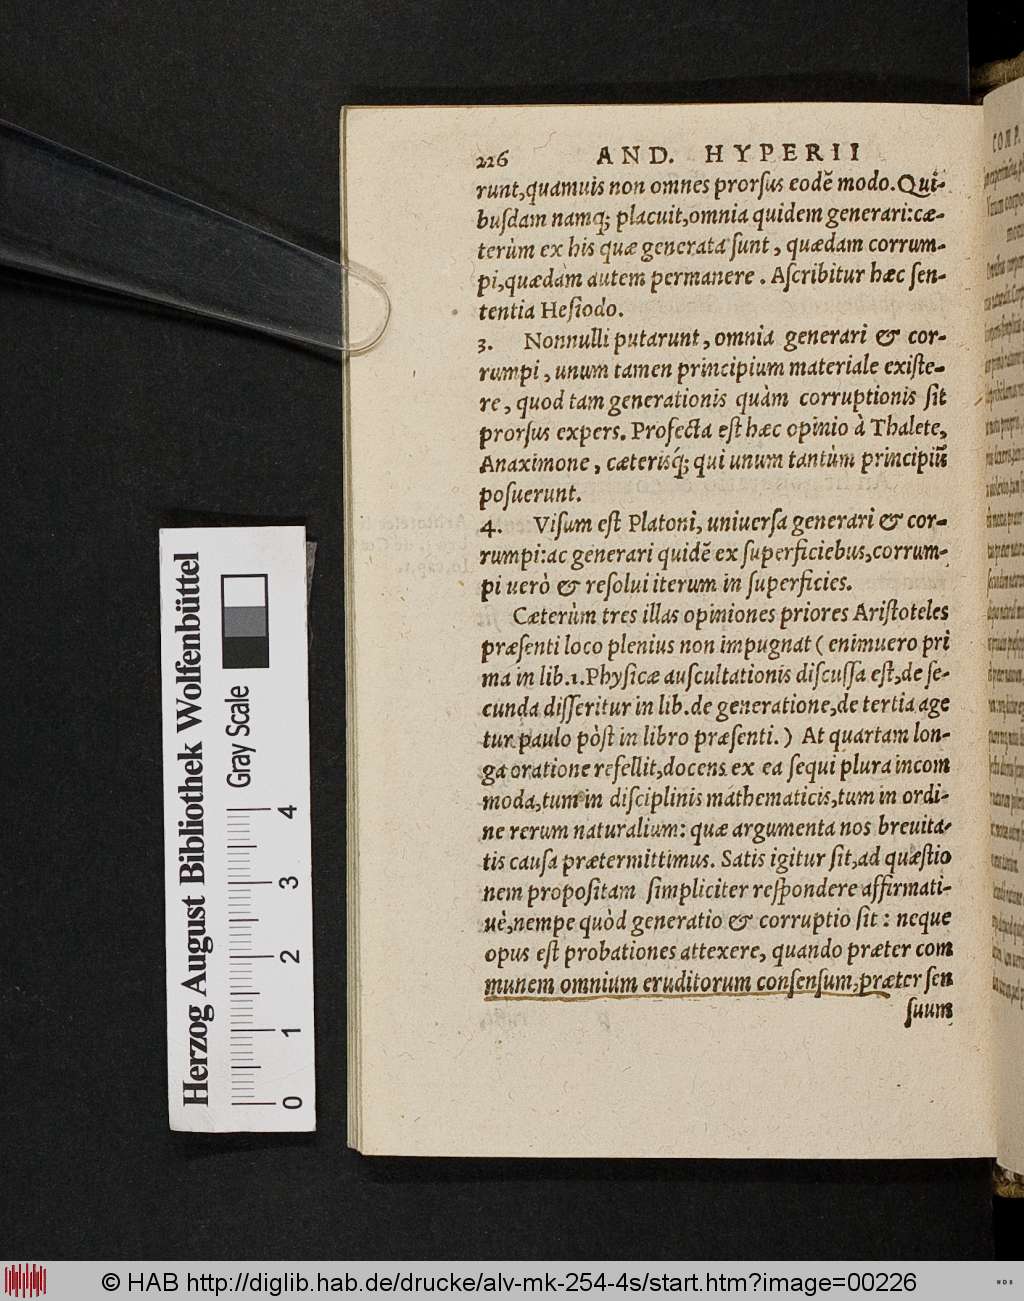 226 AND. HYPERII
runt,quamuis non omnes prorſus eodē modo. Qui-
buſdam namq; placuit,omnia quidem generari:cæ-
terùm ex his quæ generata ſunt, quædam corrum-
pi,quædam autem permanere. Aſcribitur hæc ſen-
tentia Heſiodo.
3. Nonnulli putarunt, omnia generari & cor-
rumpi, unum tamen principium materiale exiſte-
re, quod tam generationis quàm corruptionis ſit
prorſus expers. Profecta eſt hæc opinio à Thalete,
Anaximone, cæterisq́; qui unum tantùm principiū
poſuerunt.
4. Viſum eſt Platoni, uniuerſa generari & cor-
rumpi:ac generari quidē ex ſuperficiebus,corrum-
pi uerò & reſolui iterum in ſuperficies.
Cæterùm tres illas opiniones priores Ariſtoteles
præſenti loco plenius non impugnat (enimuero pri
ma in lib.1.Phyſicæ auſcultationis diſcuſſa eſt,de ſe-
cunda diſſeritur in lib.de generatione,de tertia age
tur paulo pòſt in libro præſenti.) At quartam lon-
ga oratione refellit,docens ex ea ſequi plura incom
moda,tum in diſciplinis mathematicis,tum in ordi-
ne rerum naturalium: quæ argumenta nos breuita-
tis cauſa prætermittimus. Satis igitur ſit,ad quæſtio
nem propoſitam ſimpliciter reſpondere affirmati-
uè,nempe quòd generatio & corruptio ſit: neque
opus eſt probationes attexere, quando præter com
munem omnium eruditorum conſenſum,præter ſen
ſuum
Herzog August Bibliothek Wolfenbüttel
Gray Scale
0 1 2 3 4
© HAB http://diglib.hab.de/drucke/alv-mk-254-4s/start.htm?image=00226